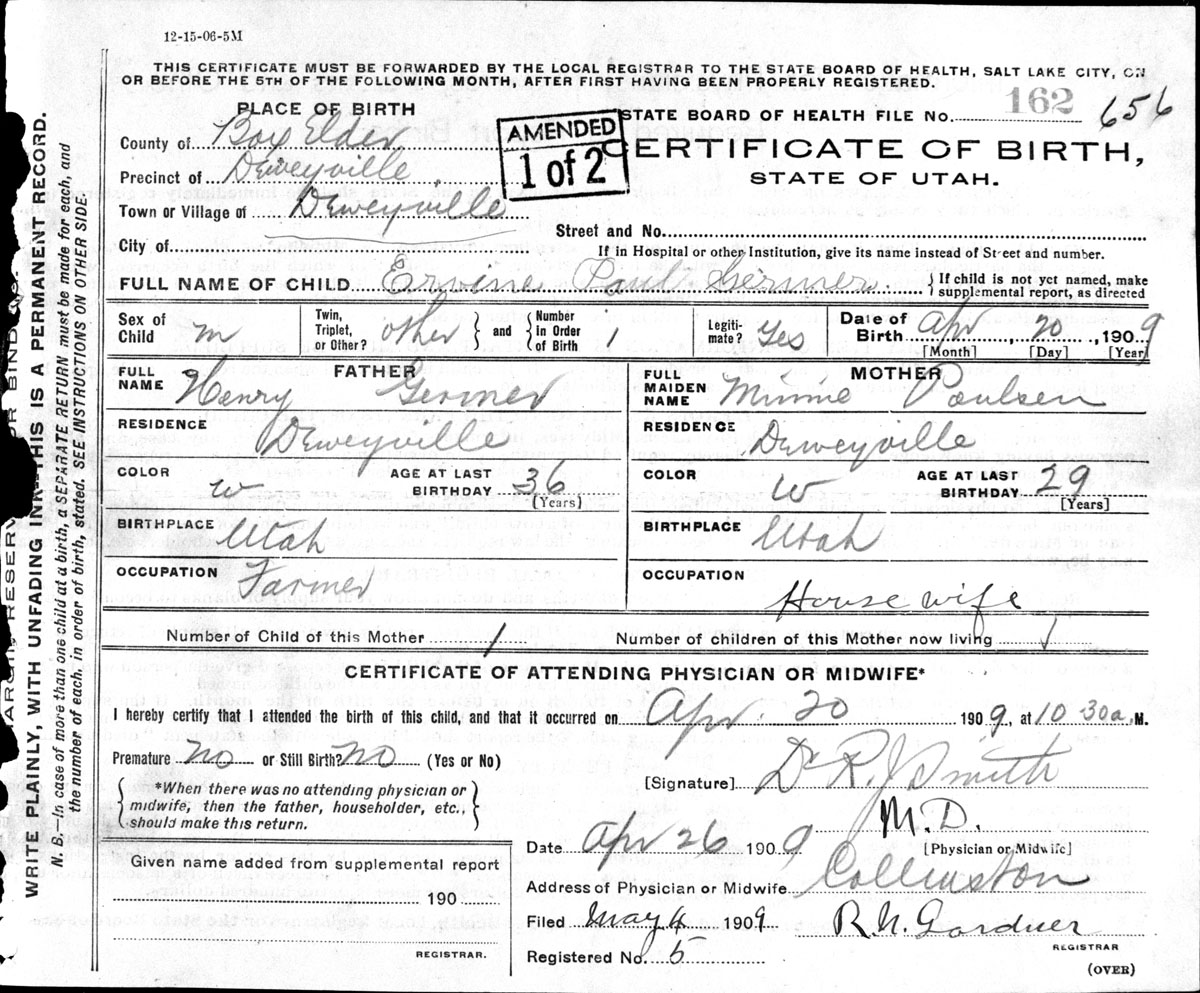 12-15-06-5M
THIS CERTIFICATE MUST BE FORWARDED BY THE LOCAL REGISTRAR TO THE STATE BOARD OF HEALTH, SALT LAKE CITY, ON
OR BEFORE THE 5TH OF THE FOLLOWING MONTH, AFTER FIRST HAVING BEEN PROPERLY REGISTERED.
PLACE OF BIRTH
STATE BOARD OF HEALTH FILE No. 162 656
County of Box Elder
AMENDED
1 of 2
CERTIFICATE OF BIRTH,
STATE OF UTAH.
Precinct of Deweyville
Town or Village of Deweyville
Street and No.
City of
If in Hospital or other Institution, give its name instead of Street and number.
FULL NAME OF CHILD Ervine Paul Germer
If child is not yet named, make
supplemental report, as directed
Sex of Child m Twin, Triplet, or Other? other and Number in Order of Birth 1 Legitimate? Yes Date of Birth Apr 20, 1909
[Month] [Day] [Year]
FATHER
FULL NAME Henry Germer
RESIDENCE Deweyville
COLOR w AGE AT LAST BIRTHDAY 36
[Years]
BIRTHPLACE Utah
OCCUPATION Farmer
MOTHER
FULL MAIDEN NAME Minnie Poulsen
RESIDENCE Deweyville
COLOR W AGE AT LAST BIRTHDAY 29
[Years]
BIRTHPLACE Utah
OCCUPATION House wife
Number of Child of this Mother 1 Number of children of this Mother now living 1
CERTIFICATE OF ATTENDING PHYSICIAN OR MIDWIFE*
I hereby certify that I attended the birth of this child, and that it occurred on Apr. 20 1909, at 10 30a.M.
Premature no or Still Birth? NO (Yes or No)
[Signature] Dr R. J Smith
*When there was no attending physician or
midwife, then the father, householder, etc.,
should make this return.
M.D.
[Physician or Midwife]
Date Apr 26 1909
Address of Physician or Midwife Collinston
Give name added from supplemental report
190
REGISTRAR.
Filed May 4 1909 R. N. Gardner
REGISTRAR
Registered No. 5
(OVER)
WRITE PLAINLY, WITH UNFADING INK--THIS IS A PERMANENT RECORD.
N. B.—In case of more than one child at a birth, a SEPARATE RETURN must be made for each, and
the number of each, in order of birth, stated. SEE INSTRUCTIONS ON OTHER SIDE.